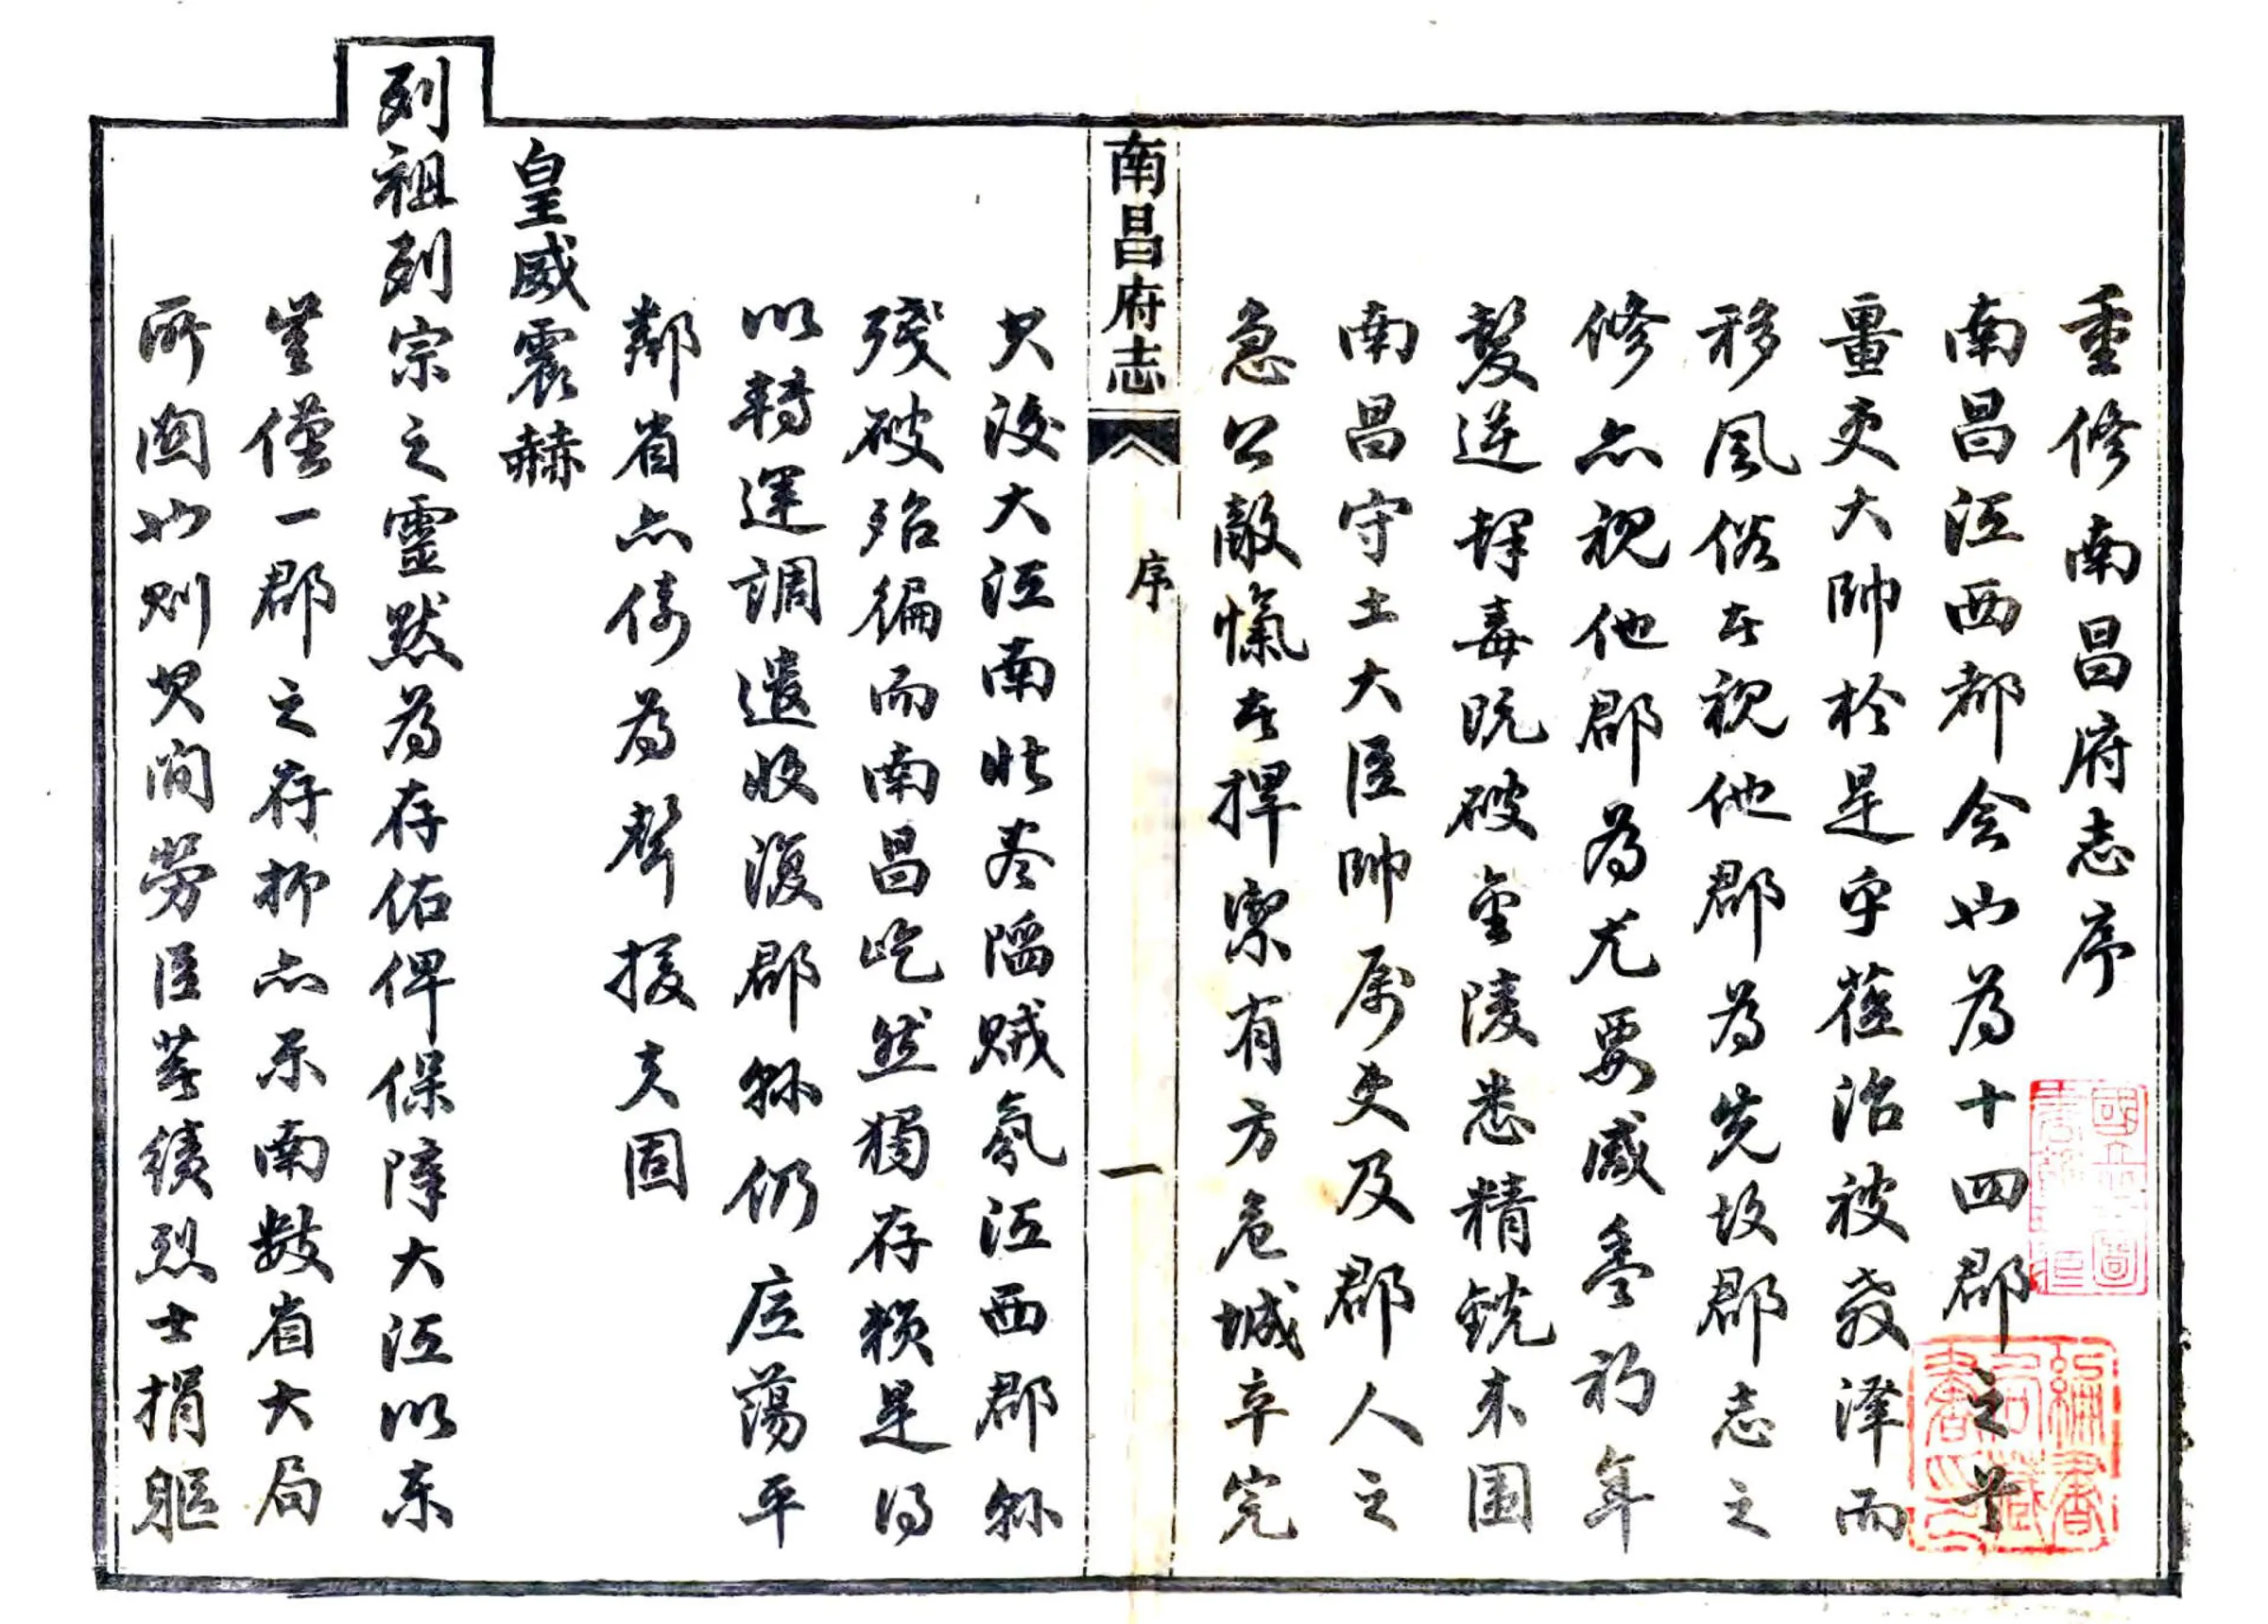 重修南昌府志序
南昌江西都会也為十四郡之首
畺吏大帥於是乎蒞治被教泽而
移風俗者視他郡為先故郡志之
修亦視他郡為尤要咸豊初年
髮逆肆毒既破金陵悉精銳来围
南昌守土大臣帥属吏及郡人之
急公敵愾者捍禦有方危城卒完
南昌府志
序
一
其後大江南北悉陷贼氛江西郡縣
殘破殆徧而南昌屹然獨存赖是得
以轉運調遣收復郡縣仍底蕩平
鄰省亦倚為聲援夫固
皇威震赫
列祖列宗之靈默為存佑俾保障大江以东
豈僅一郡之存抑亦東南數省大局
所関也則其间勞臣著績烈士捐軀